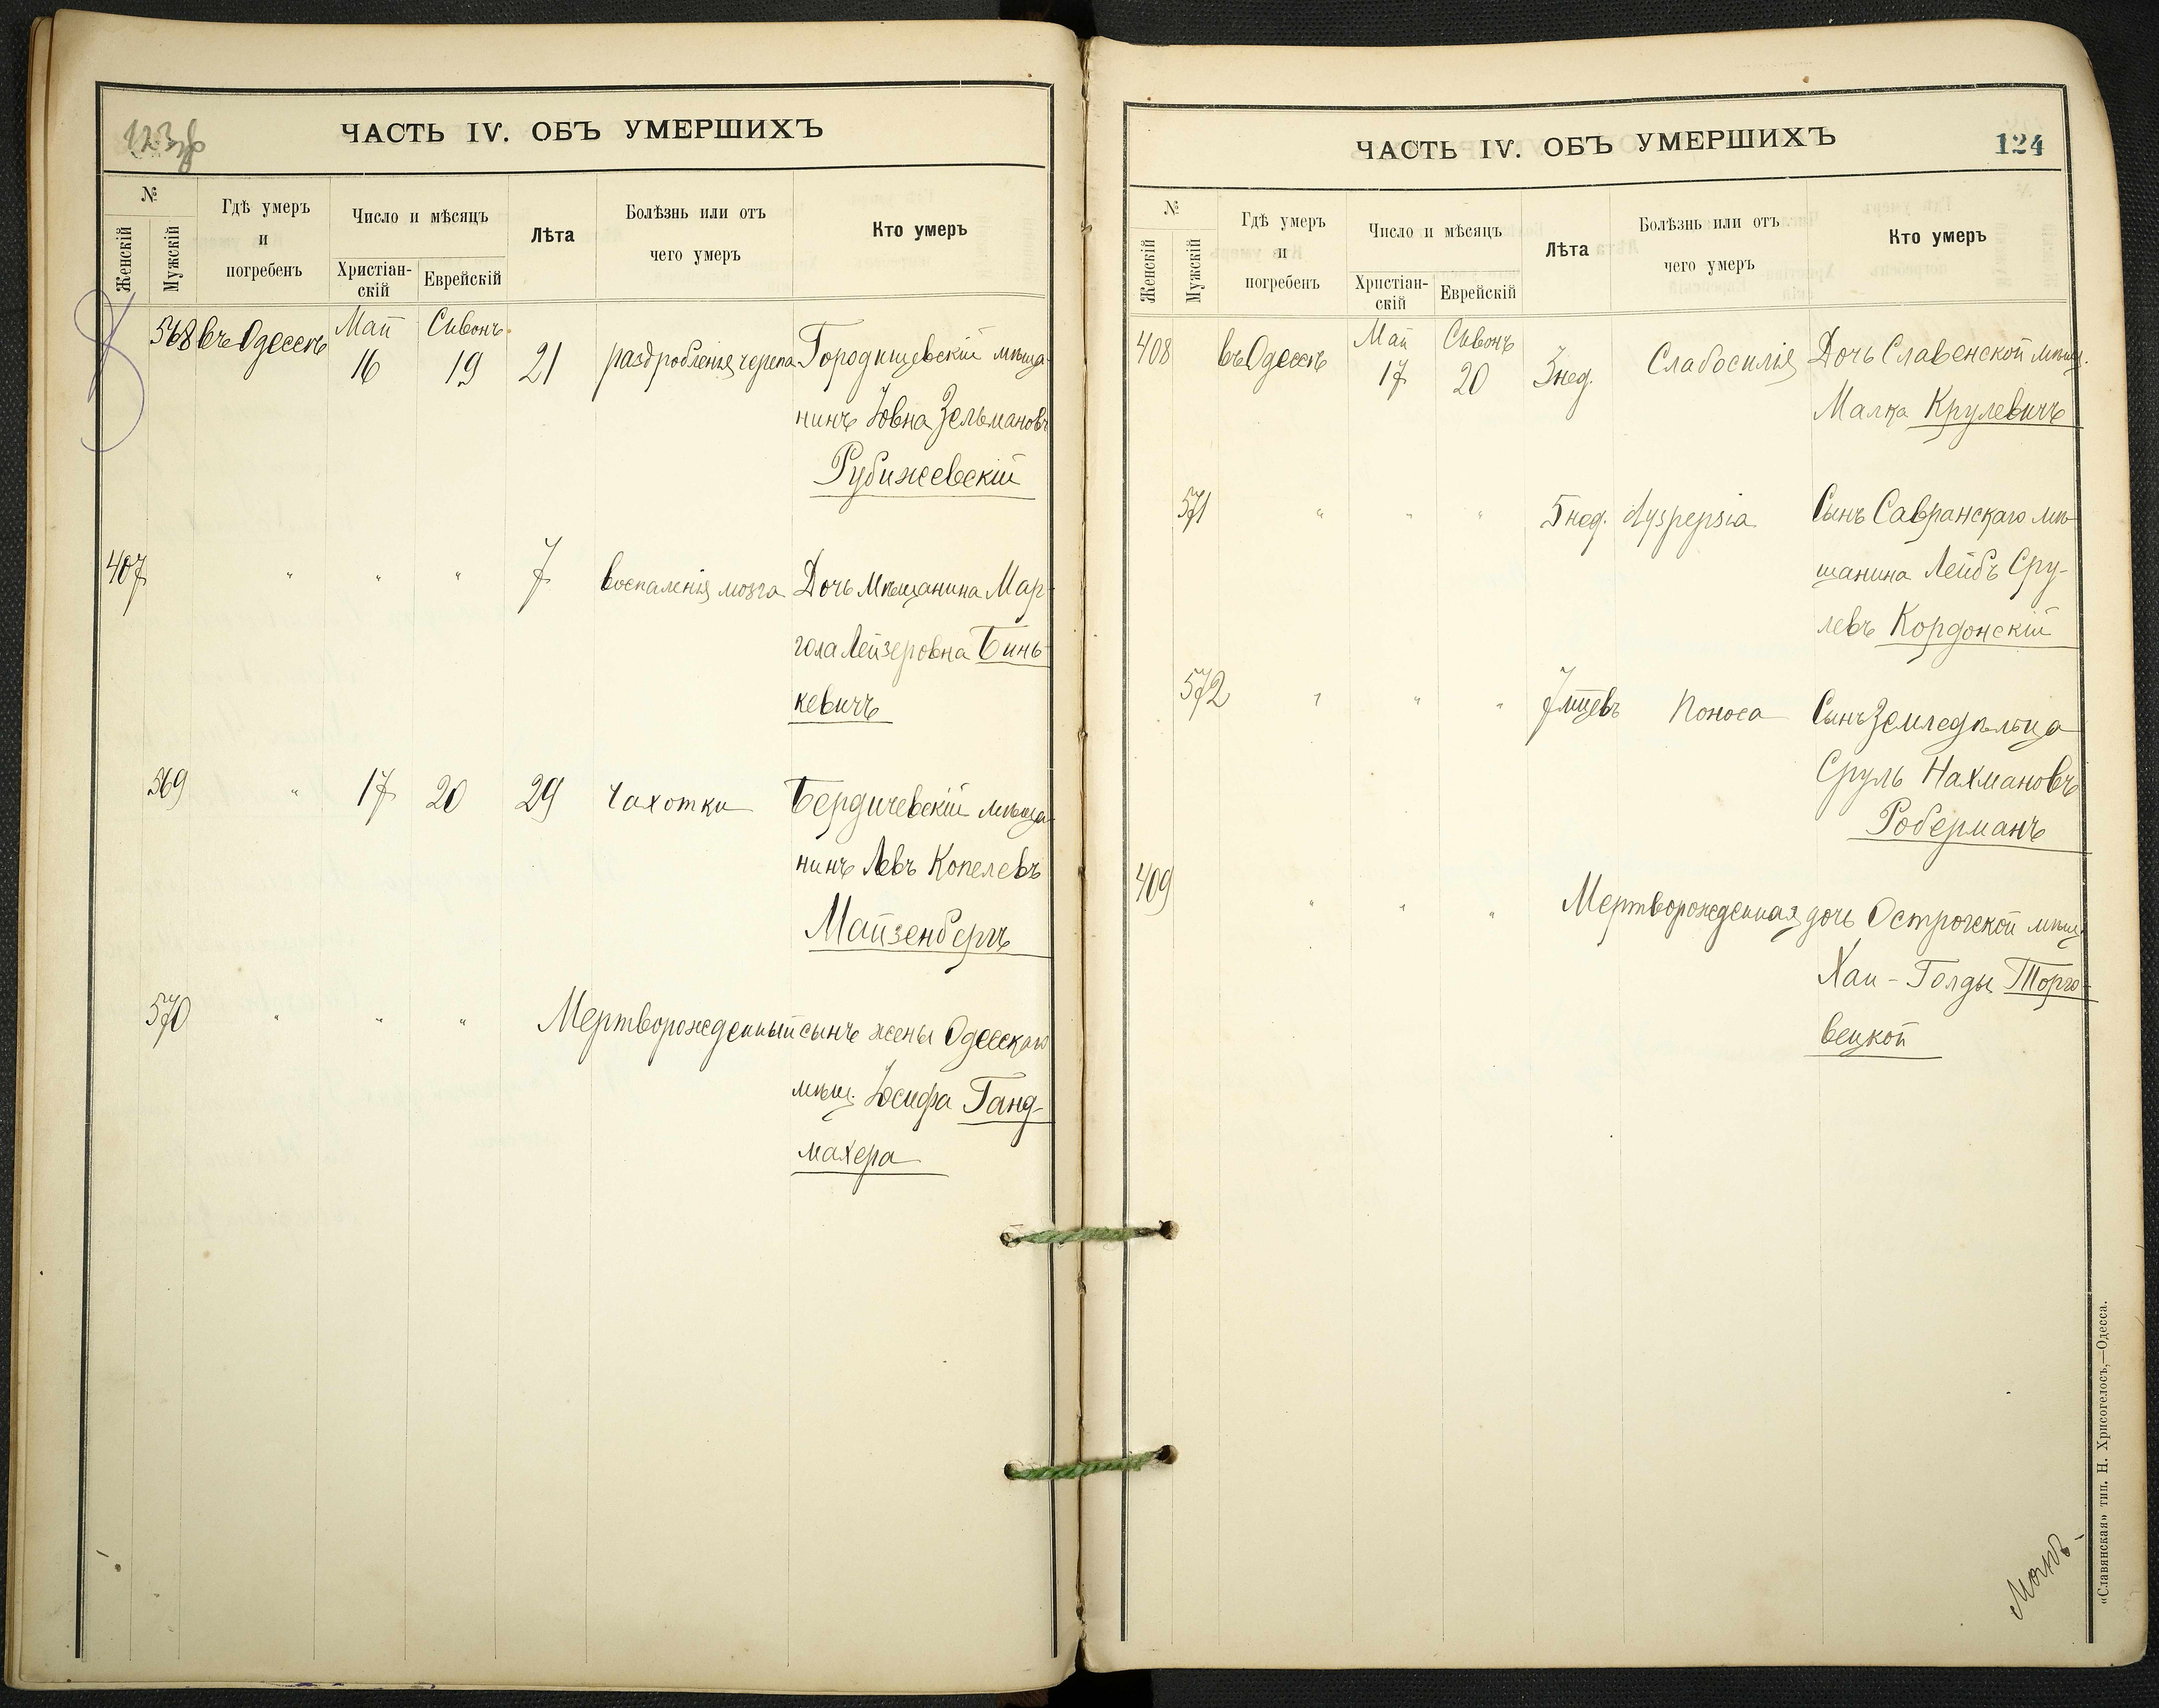 123 об
ЧАСТЬ IV. ОБЪ УМЕРШИХЪ
№
Женскій
Мужскій
Гдѣ умеръ
и
погребенъ
Число и мѣсяцъ
Христіан-
скій
Еврейскій
Лѣта
Болѣзнь или отъ
чего умеръ
Кто умеръ
568 въ Одессѣ Май 16 Сивонъ 19 21 раздробленія черепа Городищевскій мѣща-
нинъ Іовна Зельмановъ
Рубижевскій
407 " " " 7 воспаленія мозга Дочь мѣщанина Мар-
гола Лейзеровна Бинь-
кевичъ
569 " 17 20 29 Чахотки Бердичевскій мѣща-
нинъ Левъ Копелевъ
Майзенбергъ
570 " " " Мертворожденный сынъ жены Одесскаго
мѣщ. Іосифа Ганд-
махера
ЧАСТЬ IV. ОБЪ УМЕРШИХЪ
124
№
Женскій
Мужскій
Гдѣ умеръ
и
погребенъ
Число и мѣсяцъ
Христіан-
скій
Еврейскій
Лѣта
Болѣзнь или отъ
чего умеръ
Кто умеръ
408 въ Одессѣ Май 17 Сивонъ 20 3 нед. Слабосилія Дочь Славенской мѣщ.
Малка Крулевичъ
571 " " " 5 нед. dyspepsia Сынъ Савранскаго мѣ-
щанина Лейбъ Сру-
левъ Кордонскій
572 " " " 7 мцевъ Поноса Сынъ Земледѣльца
Сруль Нахмановъ
Роберманъ
409 " " " Мертворожденная дочь Острогской мѣщ.
Хаи-Голды Торго-
вецкой
«Славянская» тип. Н. Хрисогелосъ,—Одесса.